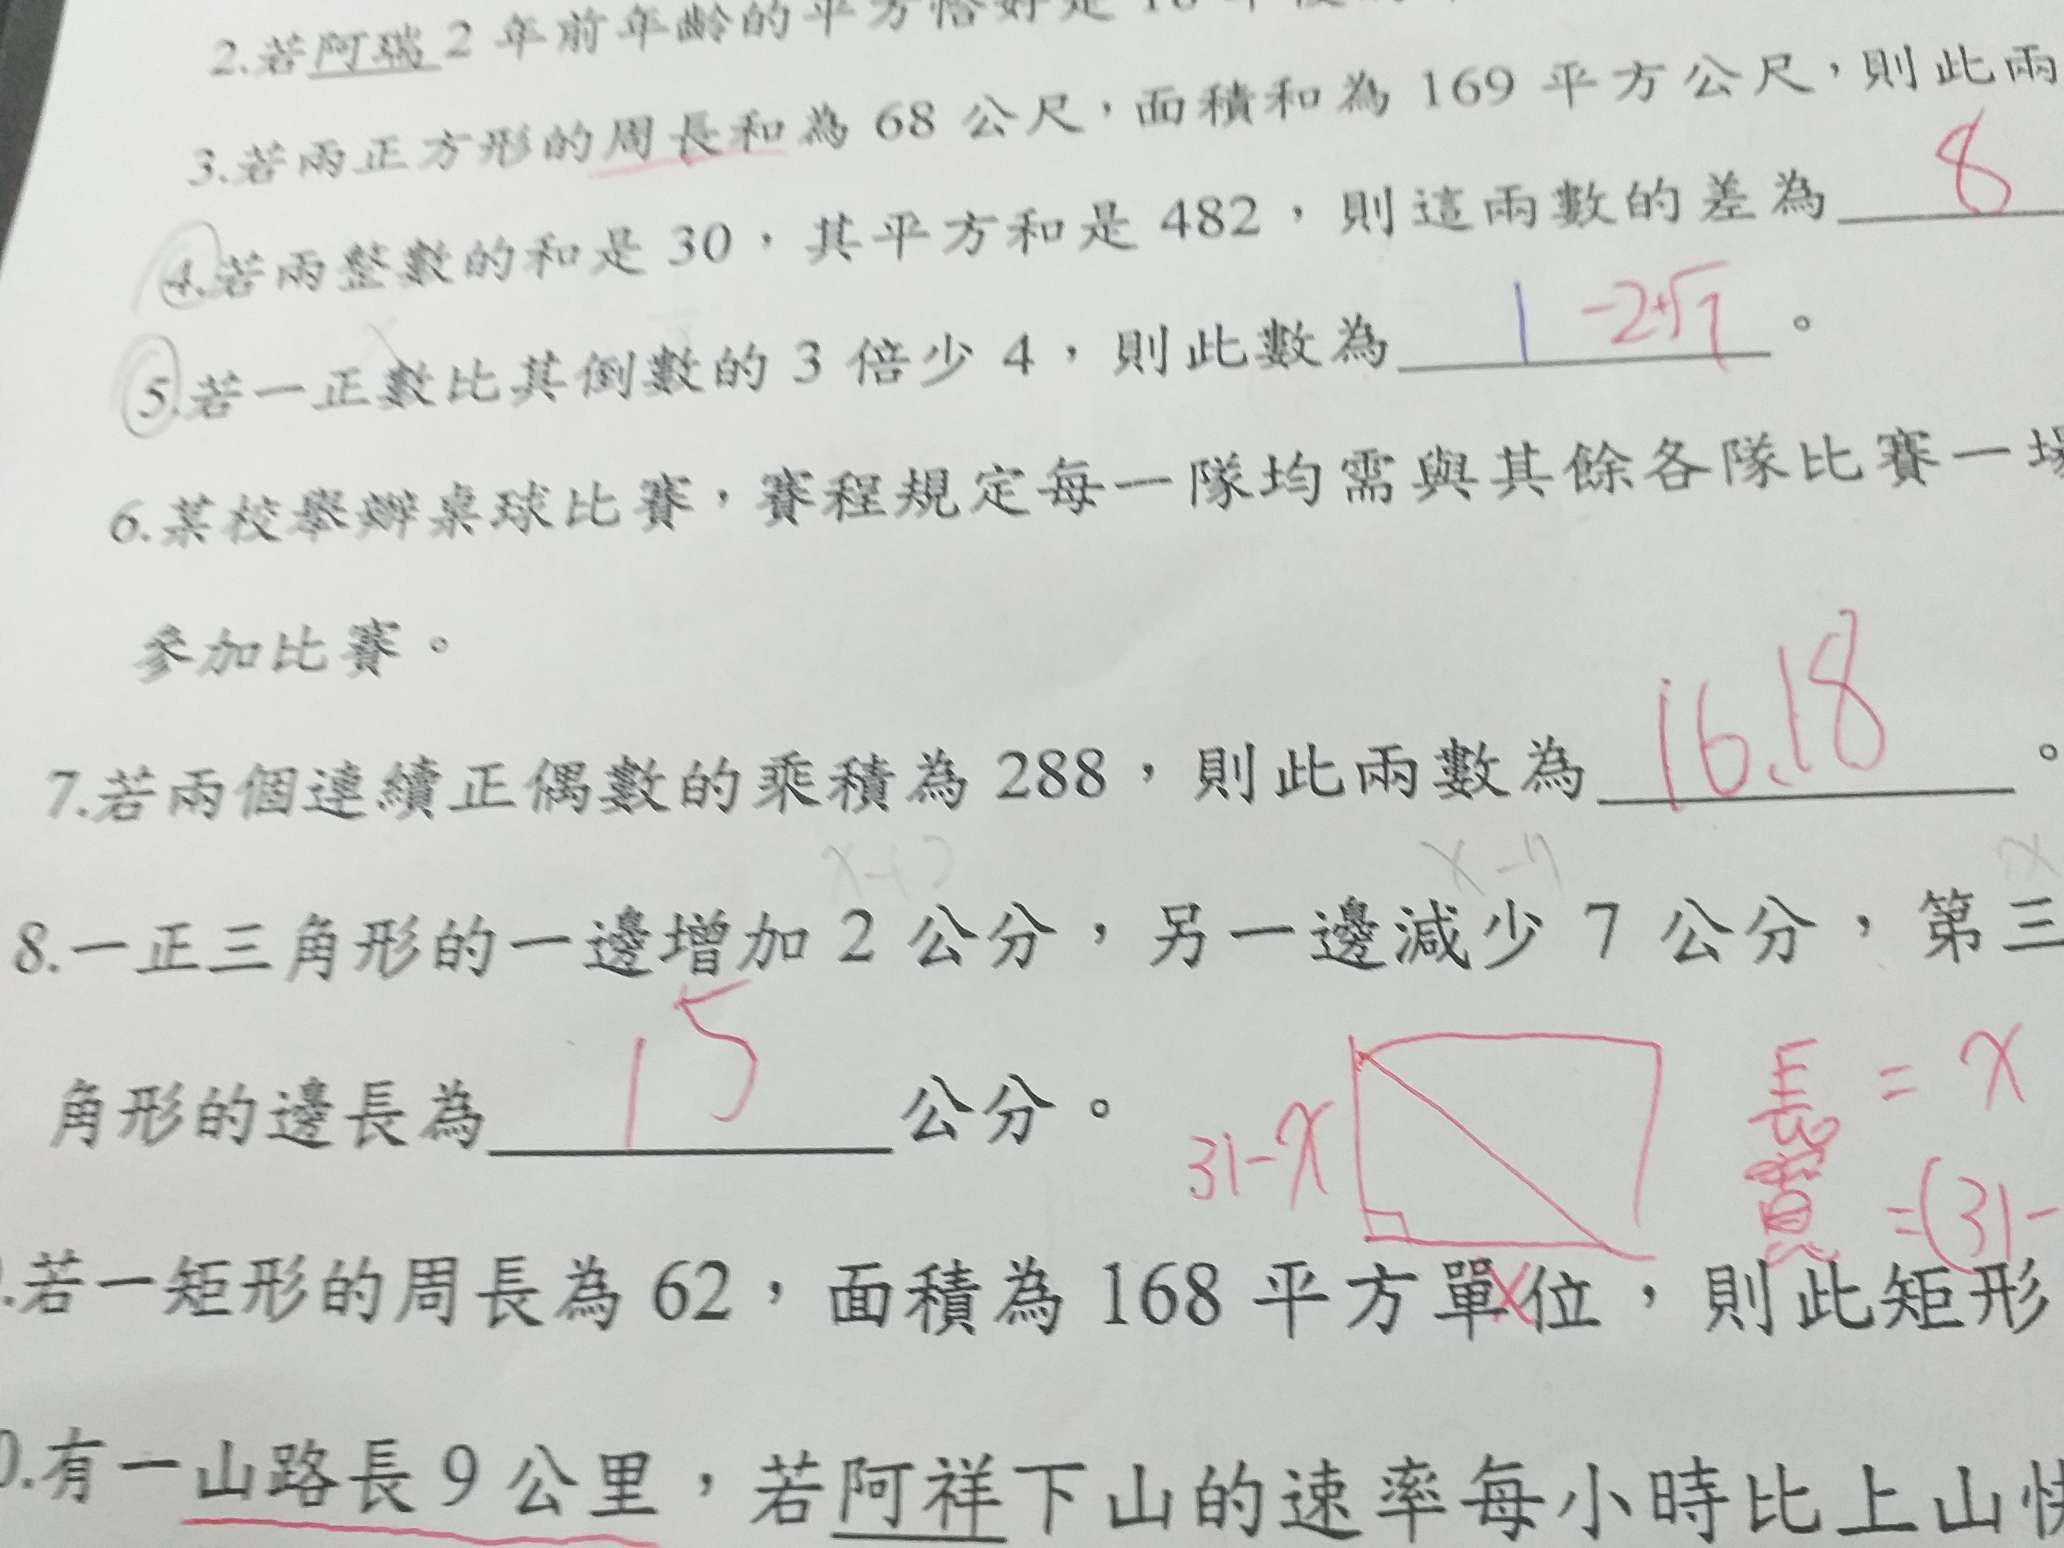 2.若阿瑞 2 年前年齡的平方恰好是 18 年後
3.若兩正方形的周長和為 68 公尺，面積和為 169 平方公尺，則此兩
4.若兩整數的和是 30，其平方和是 482，則這兩數的差為 8
5.若一正數比其倒數的 3 倍少 4，則此數為 1 -2+√7 。
6.某校舉辦桌球比賽，賽程規定每一隊均需與其餘各隊比賽一場
參加比賽。
7.若兩個連續正偶數的乘積為 288，則此兩數為 16.18 。
x+2 x-7
8.一正三角形的一邊增加 2 公分，另一邊減少 7 公分，第三
角形的邊長為 15 公分。
長 = x
31-x
寬 =(31-
.若一矩形的周長為 62，面積為 168 平方單位，則此矩形
x
0.有一山路長 9 公里，若阿祥下山的速率每小時比上山快